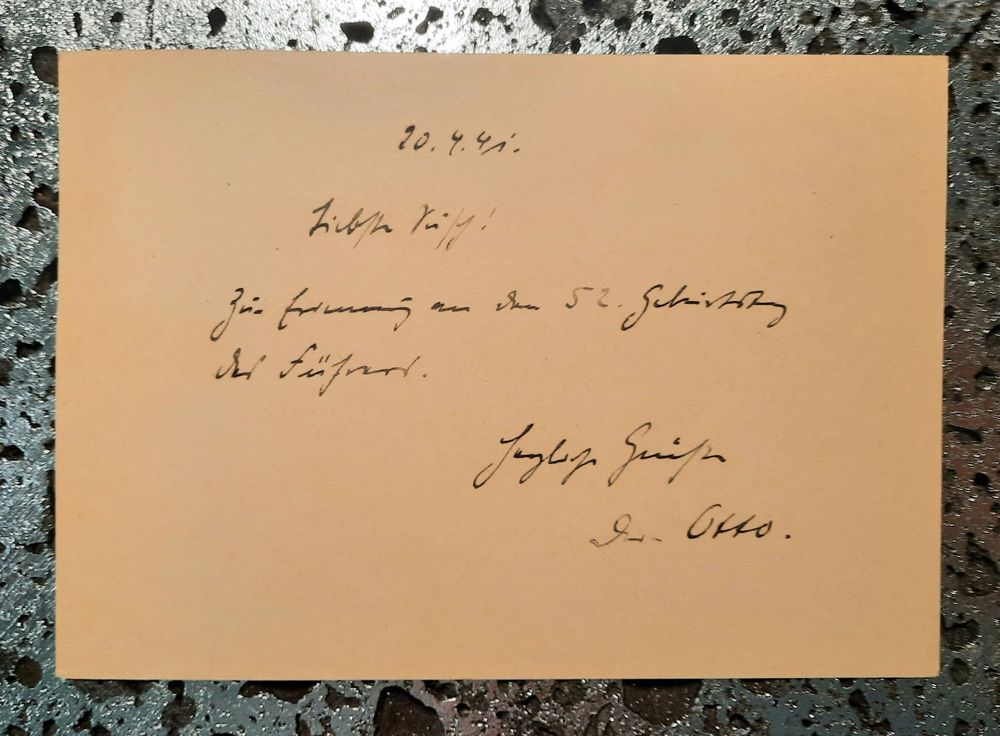 20.4.41.
Liebste
Zur Erinnerung an den 52. Geburtstag
des Führers.
Herzliche Grüße
Dein Otto.